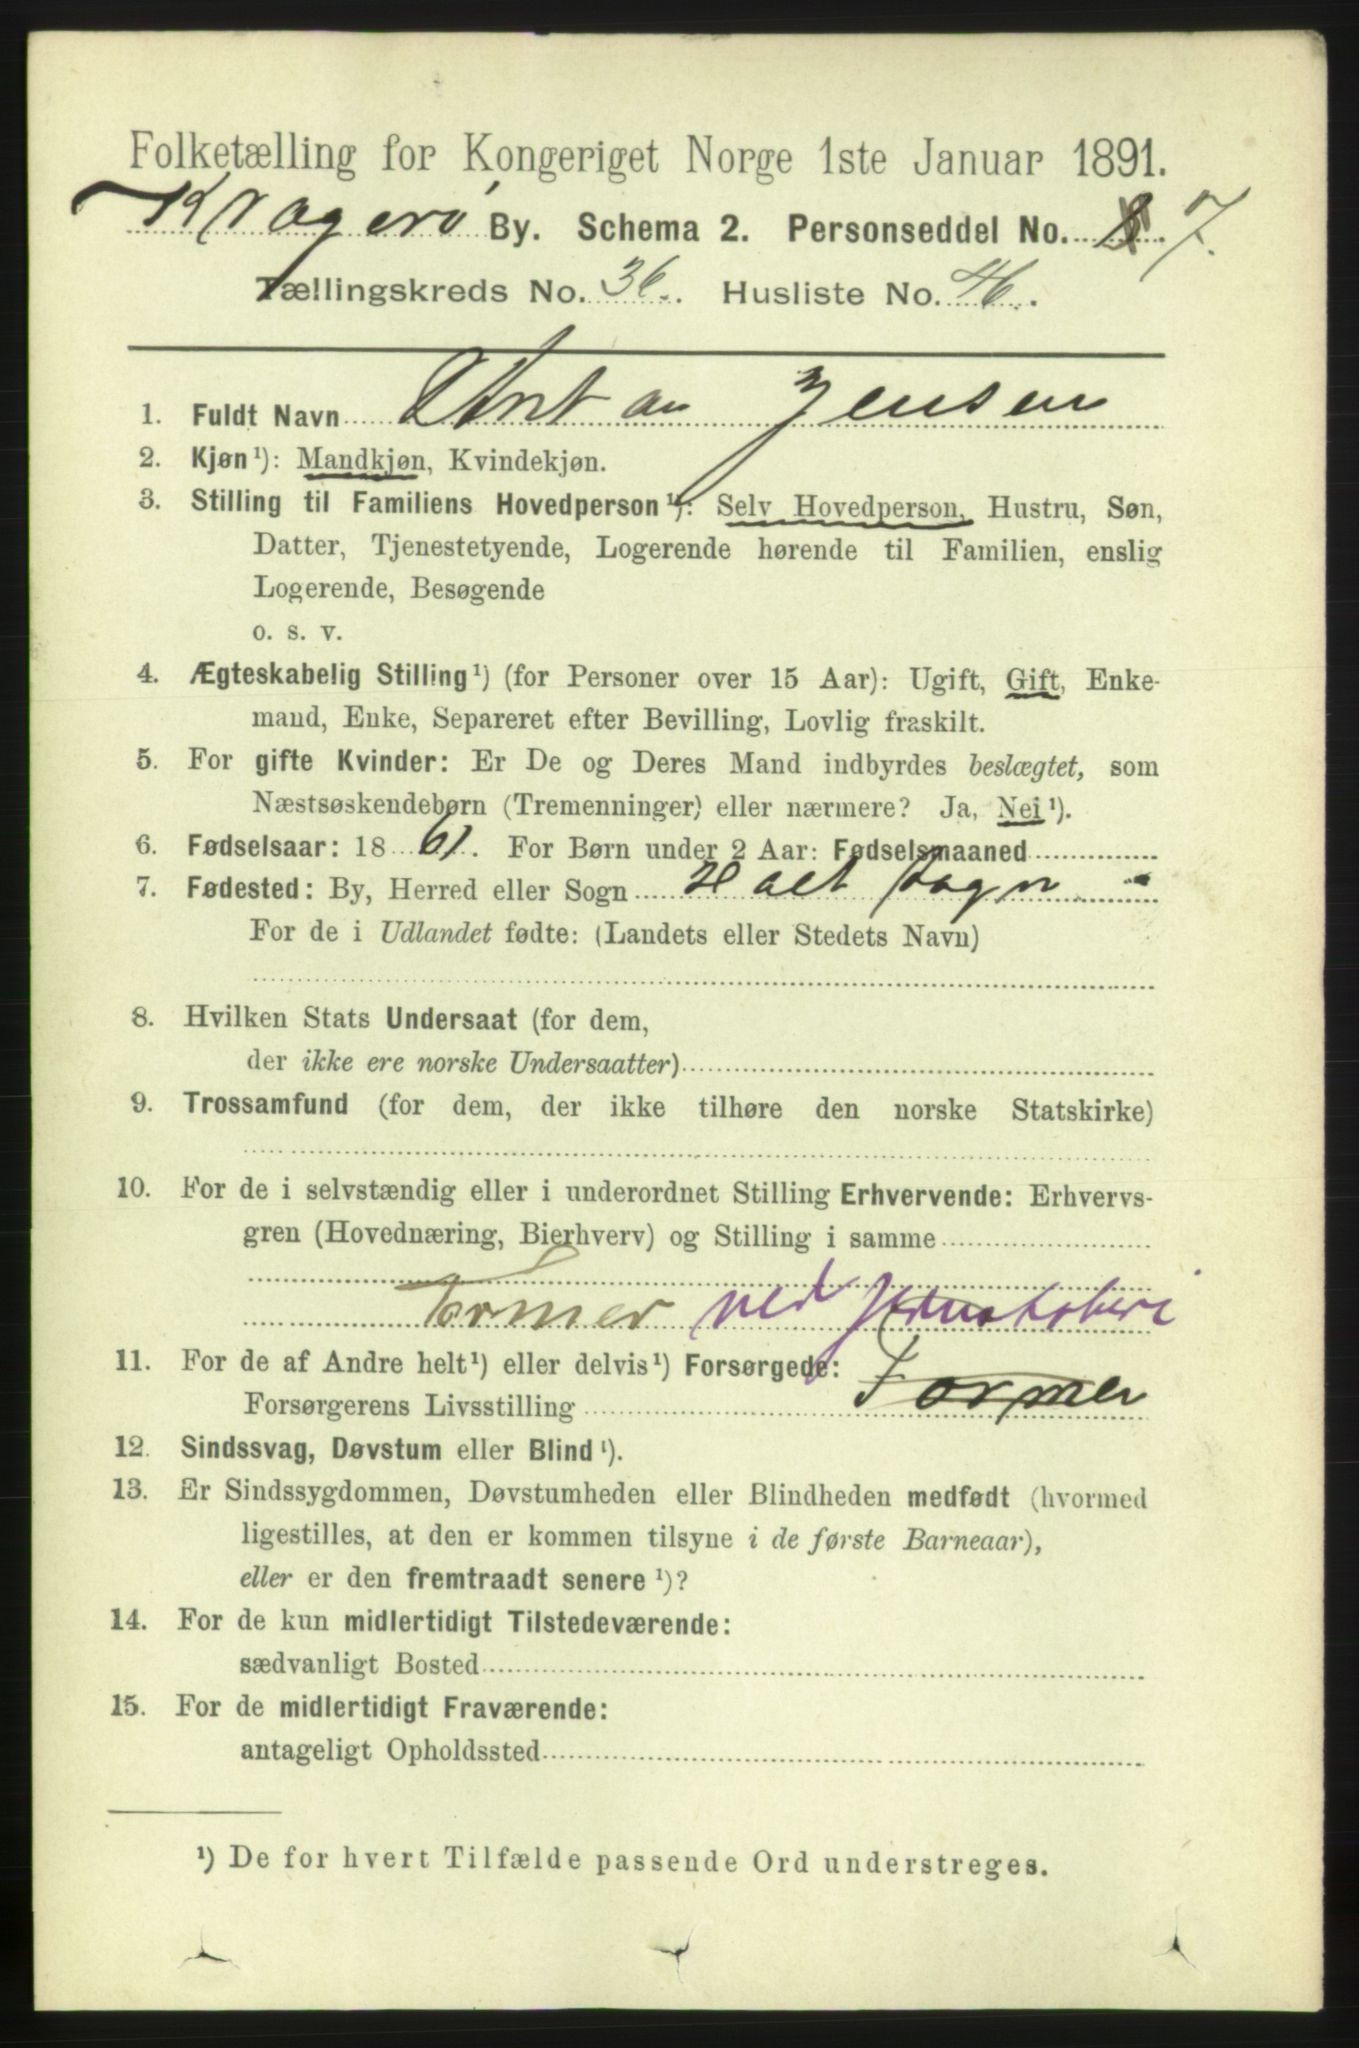 Folketælling for Kongeriget Norge 1ste Januar 1891.
Kragerø By. Schema 2. Personseddel No. 8 7.
Tællingskreds No. 36. Husliste No. 46.
1. Fuldt Navn Anton Jensen
2. Kjøn¹): Mandkjøn, Kvindekjøn.
3. Stilling til Familiens Hovedperson¹): Selv Hovedperson, Hustru, Søn,
Datter, Tjenestetyende, Logerende hørende til Familien, enslig
Logerende, Besøgende
o. s. v.
4. Ægteskabelig Stilling¹) (for Personer over 15 Aar): Ugift, Gift, Enke-
mand, Enke, Separeret efter Bevilling, Lovlig fraskilt.
5. For gifte Kvinder: Er De og Deres Mand indbyrdes beslægtet, som
Næstsøskendebørn (Tremenninger) eller nærmere? Ja, Nei¹).
6. Fødselsaar: 18 61. For Børn under 2 Aar: Fødselsmaaned
7. Fødested: By, Herred eller Sogn Holt Sogn
For de i Udlandet fødte: (Landets eller Stedets Navn)
8. Hvilken Stats Undersaat (for dem,
der ikke ere norske Undersaatter)
9. Trossamfund (for dem, der ikke tilhøre den norske Statskirke)
10. For de i selvstændig eller i underordnet Stilling Erhvervende: Erhvervs-
gren (Hovednæring, Bierhverv) og Stilling i samme
Former ved Jernstøberi
11. For de af Andre helt¹) eller delvis¹) Forsørgede:
Forsørgerens Livsstilling Former
12. Sindssvag, Døvstum eller Blind¹).
13. Er Sindssygdommen, Døvstumheden eller Blindheden medfødt (hvormed
ligestilles, at den er kommen tilsyne i de første Barneaar),
eller er den fremtraadt senere¹)?
14. For de kun midlertidigt Tilstedeværende:
sædvanligt Bosted
15. For de midlertidigt Fraværende:
antageligt Opholdssted
¹) De for hvert Tilfælde passende Ord understreges.